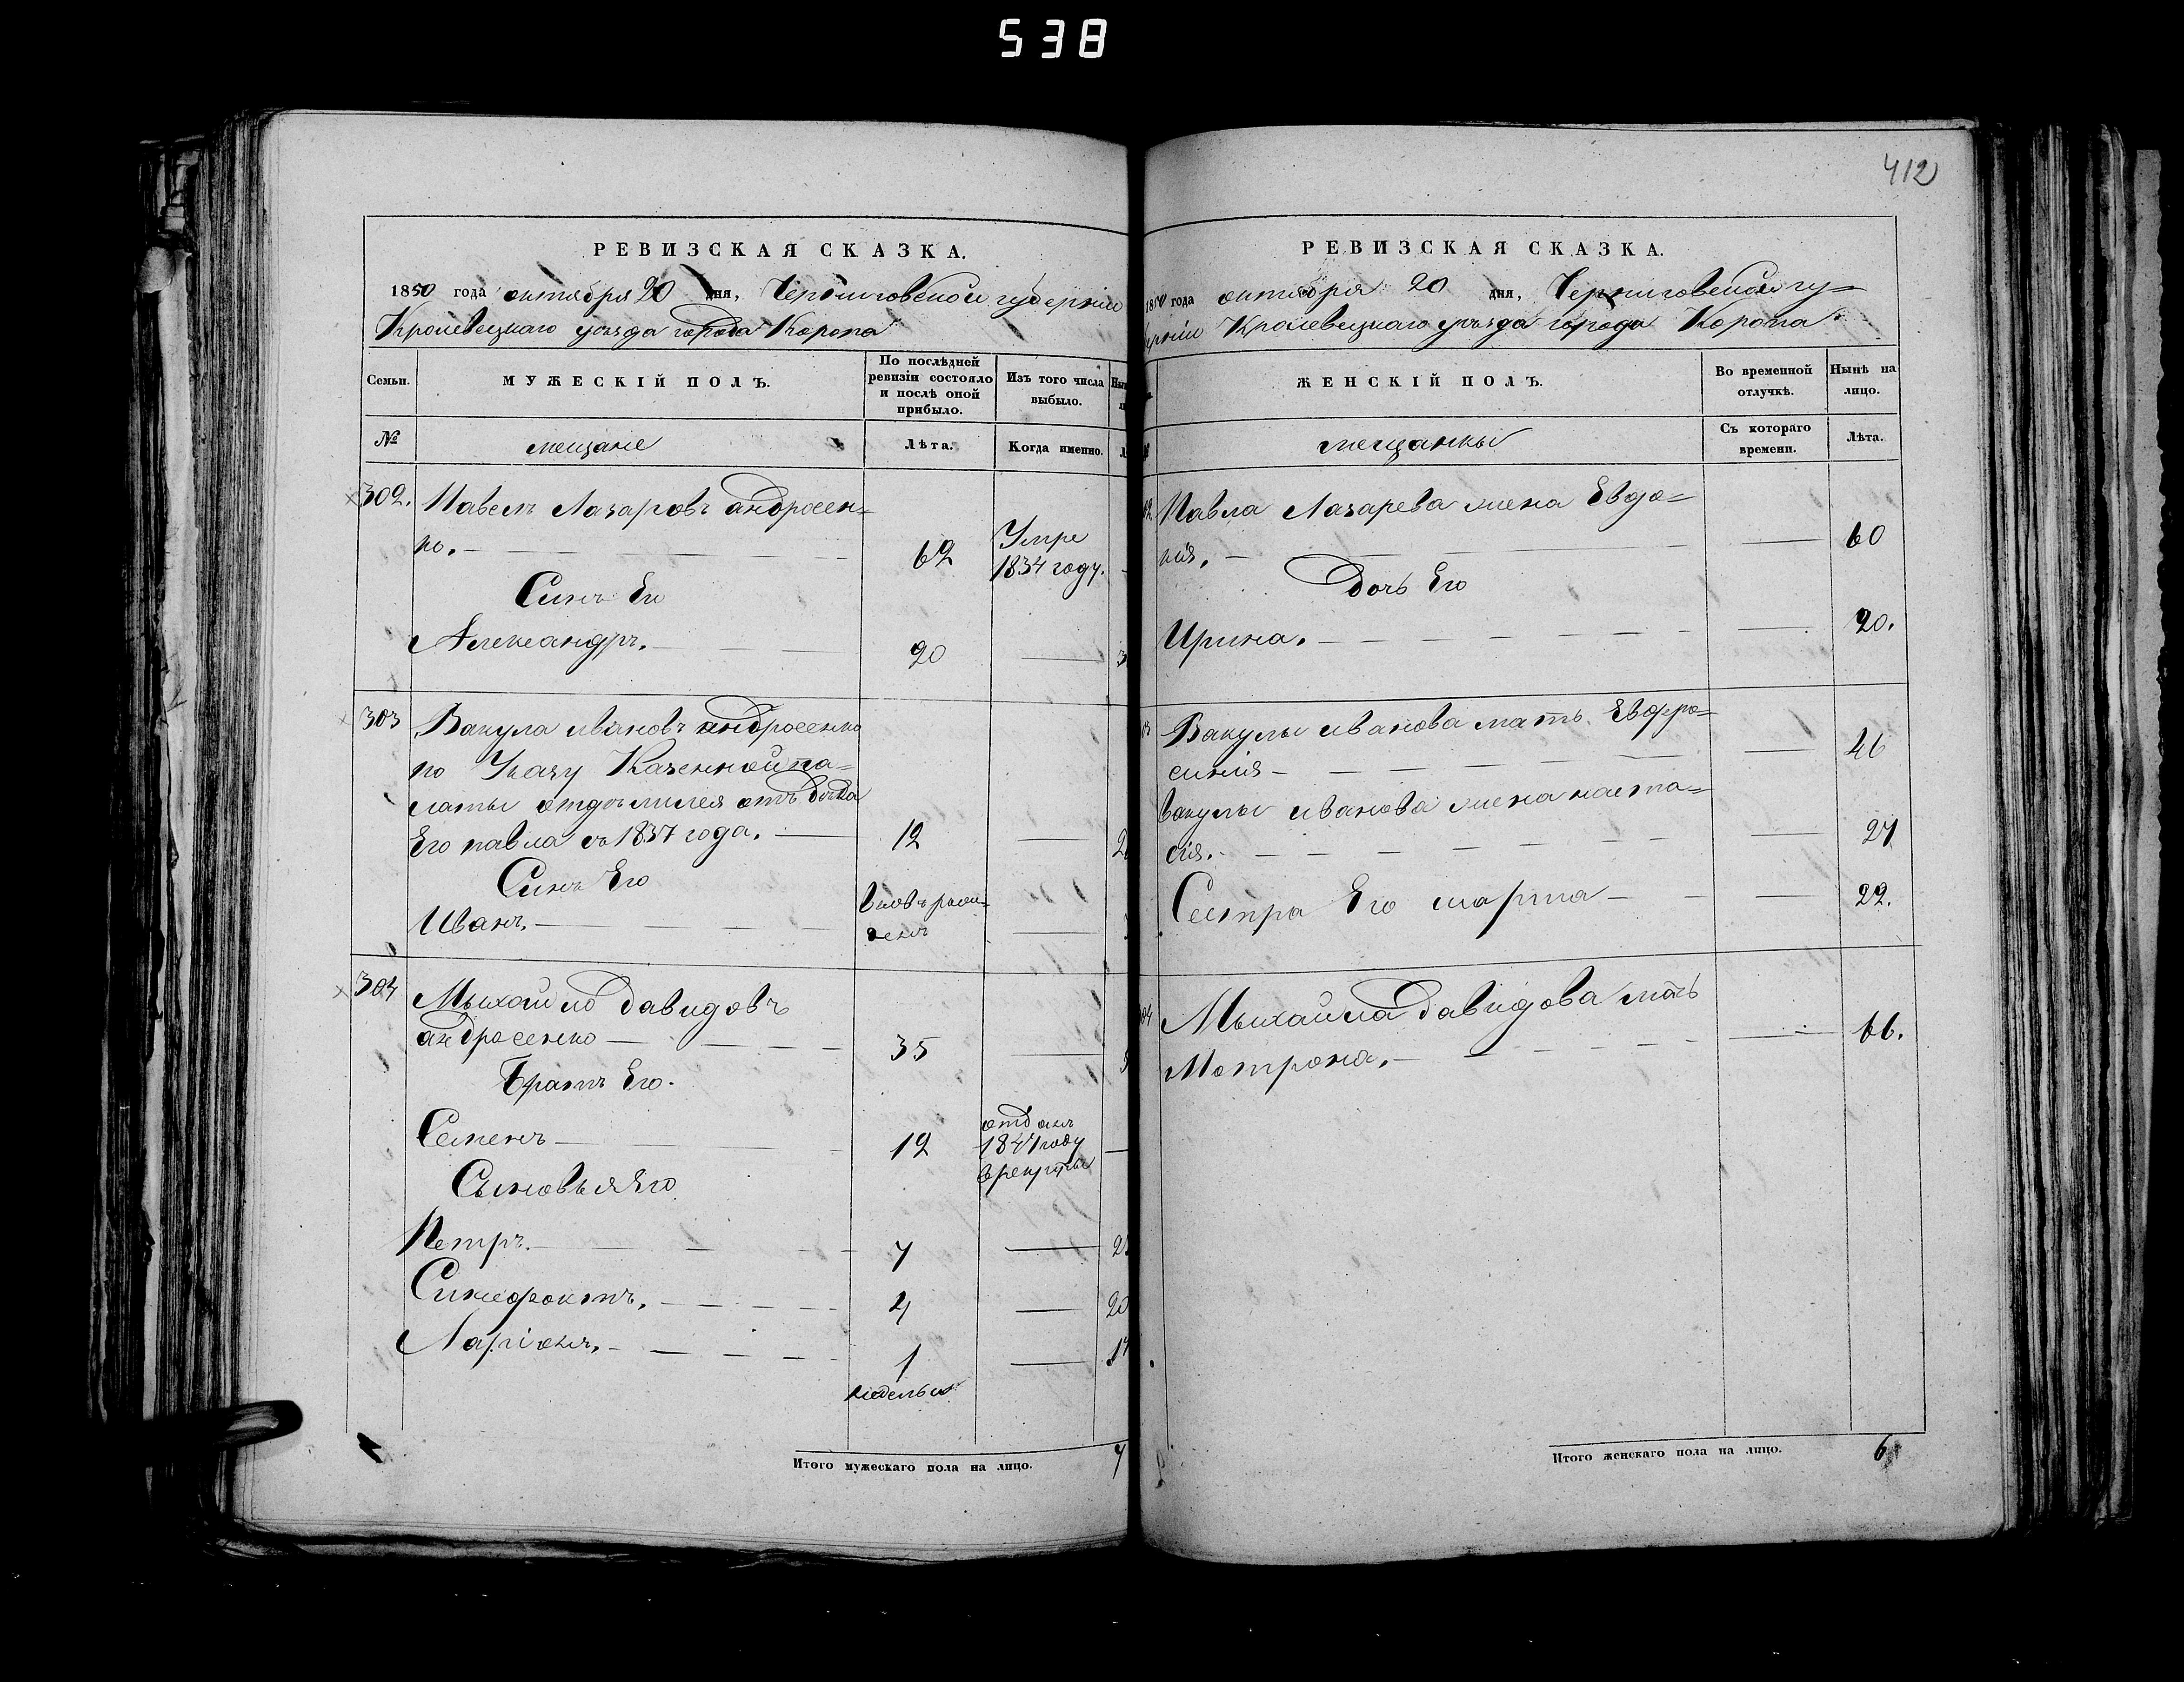 538
РЕВИЗСКАЯ СКАЗКА.
1850 года октября 20 дня, Черниговской губерніи
Кролевецкаго уезда города Коропа
Семьи.
МУЖЕСКІЙ ПОЛЪ.
По послѣдней
ревизіи состояло
и послѣ оной
прибыло.
Изъ того числа
выбыло.
№
мещане
Лѣта.
Когда именно.
302. Павелъ Лазаровъ андросен=
ко.
62
Умре
1834 году.
Синъ Его
Александръ. 20
303 Вакула ивановъ андросенко
по Указу Казенной па=
латы отделился отъ деда
Его павла съ 1837 года. 12
Синъ Его
Иванъ.
вновъ рож=
денъ
304 Мыхайло давидовъ
андросенко 35
Братъ Его.
Семенъ 12
отданъ
1847 году
в рекруты
Сыновья Его
Петръ. 7
Синефонтъ. 4 20
Ларіонъ. 1
недельи
Итого мужескаго пола на лицо. 7
412
РЕВИЗСКАЯ СКАЗКА.
1850 года октября 20 дня, Черниговской гу=
ерніи Кролевецкаго уезда города Коропа.
ЖЕНСКІЙ ПОЛЪ.
Во временной
отлучкѣ.
Нынѣ на
лицо.
мещанкы
Съ котораго
времени.
Лѣта.
Павла Лазарева жена Евдо=
кія. 60
Дочь Его
Ирина. 20.
Вакулы иванова мать Евфро=
синия 46
Вакулы иванова жена наста=
сія. 27
Сестра Его марта 22.
Мыхайла давидова мать
Мотрона. 66.
Итого женскаго пола на лицо. 6